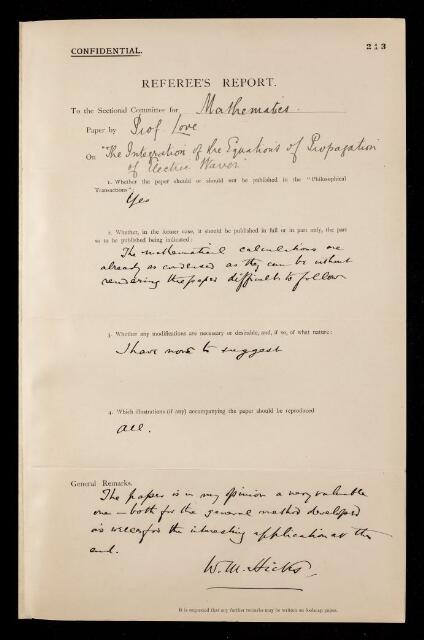 CONFIDENTIAL.
213
REFEREE'S REPORT.
To the Sectional Committee for Mathematics.
Paper by Prof. Love
On "The Integration of the Equations of Propagation
of Electric Waves"
1. Whether the paper should or should not be published in the "Philosophical
Transactions":
Yes
2. Whether, in the former case, it should be published in full or in part only, the part
so to be published being indicated:
The mathematical calculations are
already as condensed as they can be without
rendering the paper difficult to follow
3. Whether any modifications are necessary or desirable, and, if so, of what nature:
I have none to suggest
4. Which illustrations (if any) accompanying the paper should be reproduced
all.
General Remarks.
The paper is in my opinion a very valuable
one — both for the general method developed
as well as for the interesting application at the
end.
W. M. Hicks
It is requested that any further remarks may be written on foolscap paper.